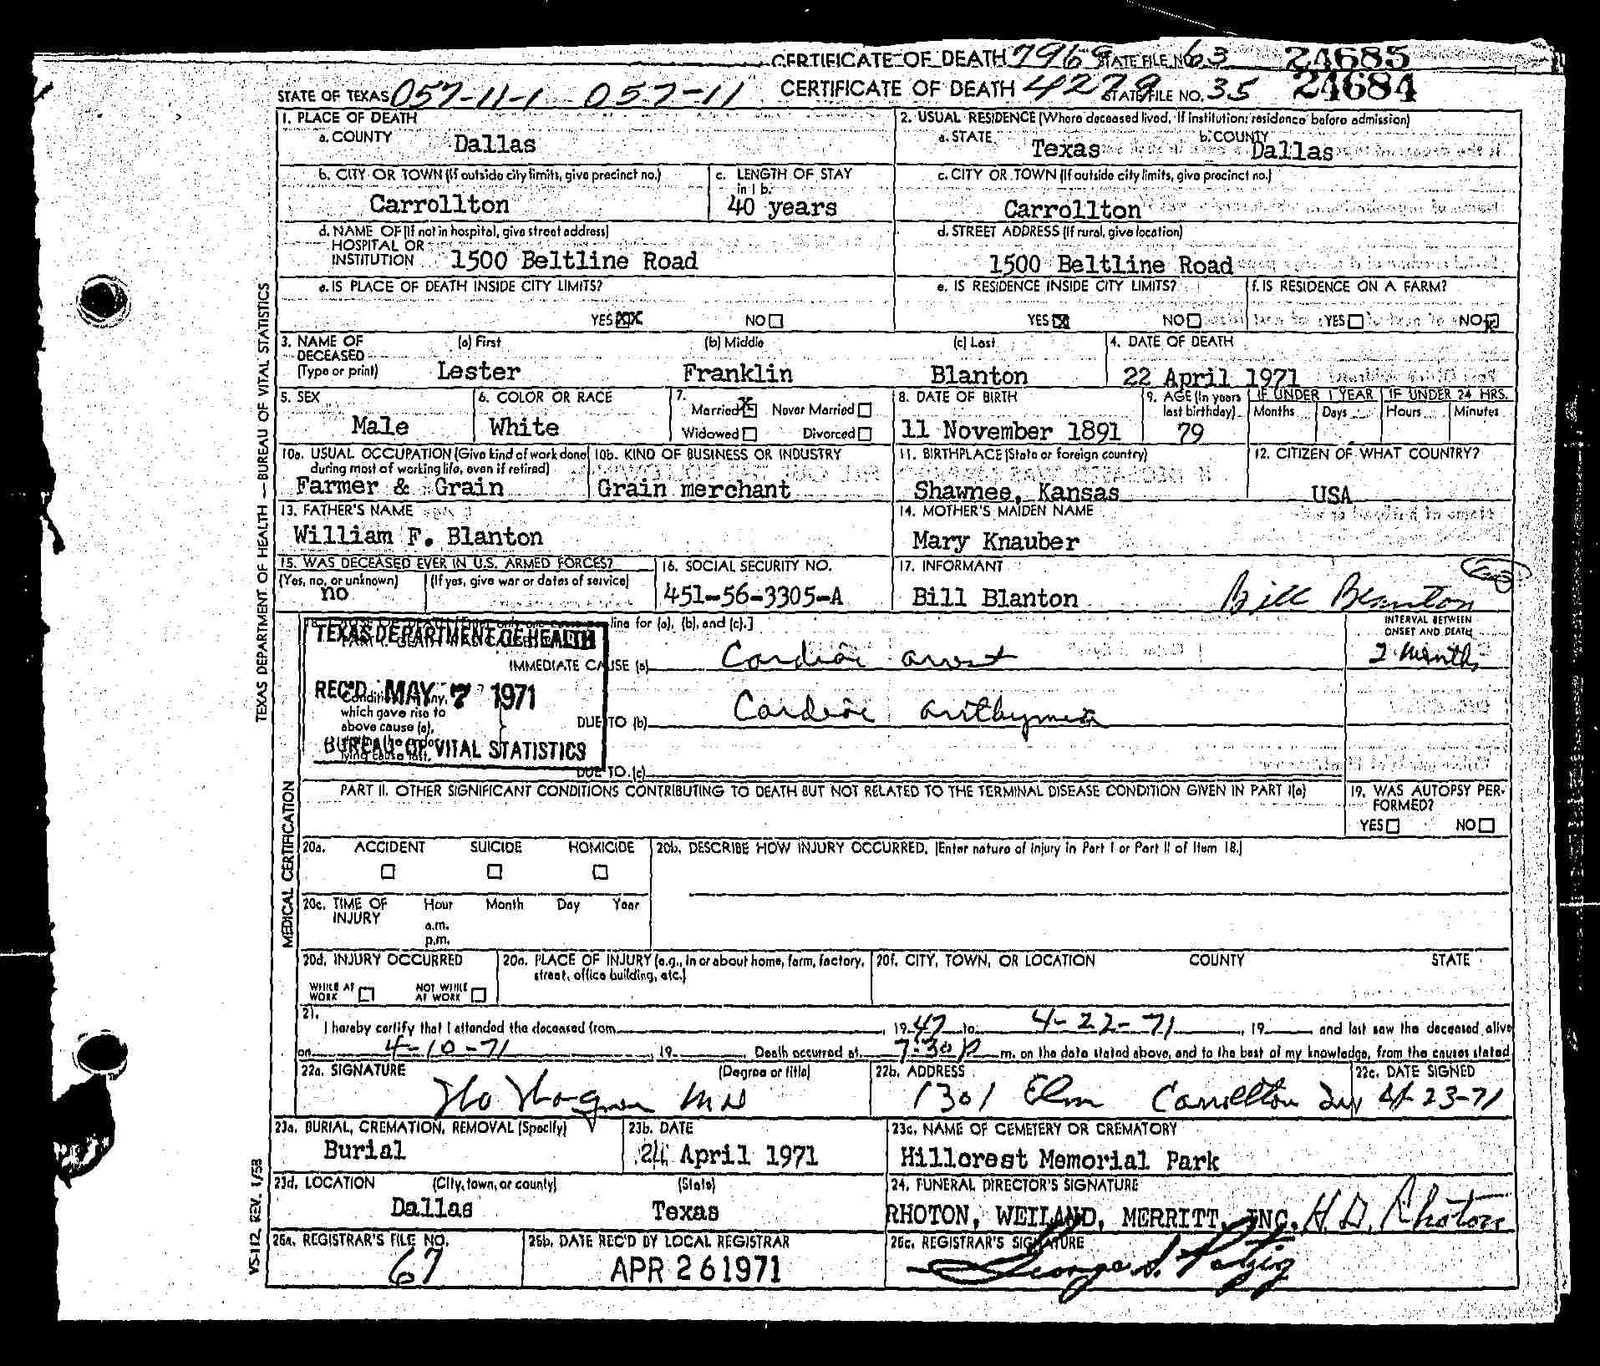 CERTIFICATE OF DEATH 7969 STATE FILE NO. 63 24685
STATE OF TEXAS 057-11-1 057-11 CERTIFICATE OF DEATH 4279 STATE FILE NO. 35 24684
1. PLACE OF DEATH
a. COUNTY Dallas
2. USUAL RESIDENCE (Where deceased lived. If institution: residence before admission)
a. STATE Texas b. COUNTY Dallas
b. CITY OR TOWN (If outside city limits, give precinct no.) Carrollton
c. LENGTH OF STAY in 1 b. 40 years
c. CITY OR TOWN (If outside city limits, give precinct no.) Carrollton
d. NAME OF (If not in hospital, give street address)
HOSPITAL OR
INSTITUTION 1500 Beltline Road
d. STREET ADDRESS (If rural, give location)
1500 Beltline Road
e. IS PLACE OF DEATH INSIDE CITY LIMITS?
YES XX NO
e. IS RESIDENCE INSIDE CITY LIMITS?
YES X NO
f. IS RESIDENCE ON A FARM?
YES NO X
3. NAME OF DECEASED (Type or print)
(a) First (b) Middle (c) Last
Lester Franklin Blanton
4. DATE OF DEATH
22 April 1971
5. SEX
Male
6. COLOR OR RACE
White
7. Married X Never Married
Widowed Divorced
8. DATE OF BIRTH
11 November 1891
9. AGE (In years last birthday)
79
IF UNDER 1 YEAR Months Days
IF UNDER 24 HRS. Hours Minutes
10a. USUAL OCCUPATION (Give kind of work done during most of working life, even if retired)
Farmer & Grain
10b. KIND OF BUSINESS OR INDUSTRY
Grain merchant
11. BIRTHPLACE (State or foreign country)
Shawnee, Kansas
12. CITIZEN OF WHAT COUNTRY?
USA
13. FATHER'S NAME
William F. Blanton
14. MOTHER'S MAIDEN NAME
Mary Knauber
15. WAS DECEASED EVER IN U.S. ARMED FORCES?
(Yes, no, or unknown) (If yes, give war or dates of service)
no
16. SOCIAL SECURITY NO.
451-56-3305-A
17. INFORMANT
Bill Blanton Bill Blanton
line for (a), (b), and (c).]
INTERVAL BETWEEN ONSET AND DEATH
TEXAS DEPARTMENT OF HEALTH
REC'D MAY 7 1971
BUREAU OF VITAL STATISTICS
IMMEDIATE CAUSE (a) Cardiac arrest 2 months
which gave rise to
above cause (a),
lying cause last.
DUE TO (b) Cardiac arithymia
DUE TO (c)
PART II. OTHER SIGNIFICANT CONDITIONS CONTRIBUTING TO DEATH BUT NOT RELATED TO THE TERMINAL DISEASE CONDITION GIVEN IN PART I(a)
19. WAS AUTOPSY PERFORMED?
YES NO
20a. ACCIDENT SUICIDE HOMICIDE
20b. DESCRIBE HOW INJURY OCCURRED. (Enter nature of injury in Part I or Part II of Item 18.)
20c. TIME OF INJURY Hour Month Day Year
a.m.
p.m.
20d. INJURY OCCURRED
WHILE AT WORK NOT WHILE AT WORK
20e. PLACE OF INJURY (e.g., in or about home, farm, factory, street, office building, etc.)
20f. CITY, TOWN, OR LOCATION COUNTY STATE
21. I hereby certify that I attended the deceased from, 19 47 to 4-22-71, 19 and last saw the deceased alive
on 4-10-71, 19 Death occurred at 7:30 P m. on the date stated above, and to the best of my knowledge, from the causes stated
22a. SIGNATURE (Degree or title)
MD
22b. ADDRESS
1301 Elm Carrollton
22c. DATE SIGNED
4-23-71
23a. BURIAL, CREMATION, REMOVAL (Specify)
Burial
23b. DATE
24 April 1971
23c. NAME OF CEMETERY OR CREMATORY
Hillcrest Memorial Park
23d. LOCATION (City, town, or county) (State)
Dallas Texas
24. FUNERAL DIRECTOR'S SIGNATURE
RHOTON, WEILAND, MERRITT, INC. H.D. Rhoton
25a. REGISTRAR'S FILE NO.
67
25b. DATE REC'D BY LOCAL REGISTRAR
APR 26 1971
25c. REGISTRAR'S SIGNATURE
TEXAS DEPARTMENT OF HEALTH — BUREAU OF VITAL STATISTICS
MEDICAL CERTIFICATION
VS-112 REV. 1/58